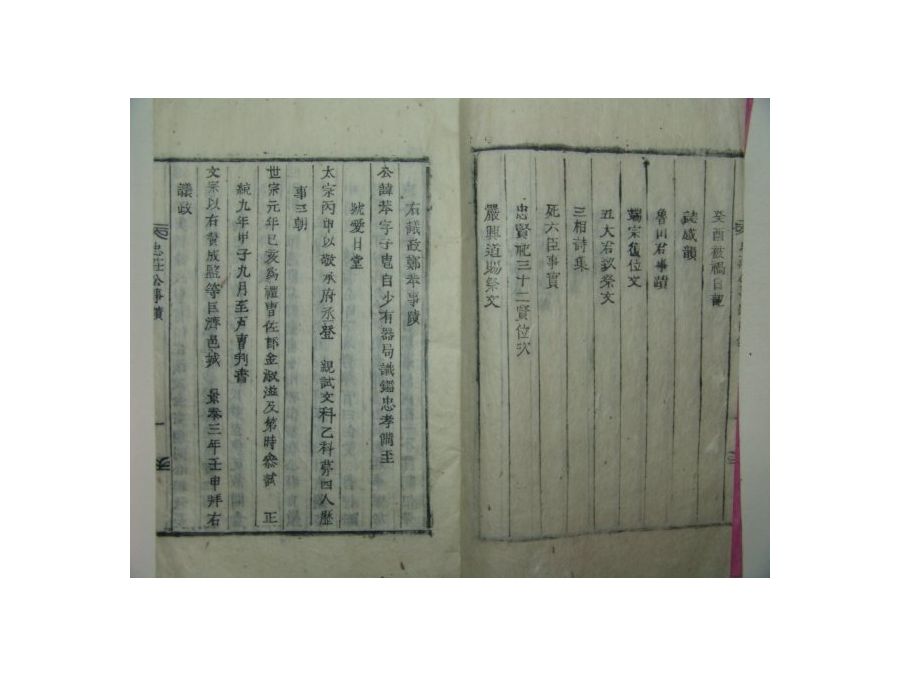 癸酉被禍日記
魯山君事蹟
端宗復位文
五大君致祭文
三相詩集
死六臣事實
忠賢配三十二賢位次
嚴興道賜祭文
右議政鄭苯事蹟
公諱苯字子㽕自少有器局識鑑忠孝備至
號愛日堂
太宗丙申以敬承府丞登 親試文科乙科第四人歷
事三朝
世宗元年己亥爲禮曹佐郎金淑滋及第時參試 正
統九年甲子九月至戶曹判書
文宗以右贊成監等巨濟邑城 景泰三年壬申拜右
議政
忠莊公事蹟
一